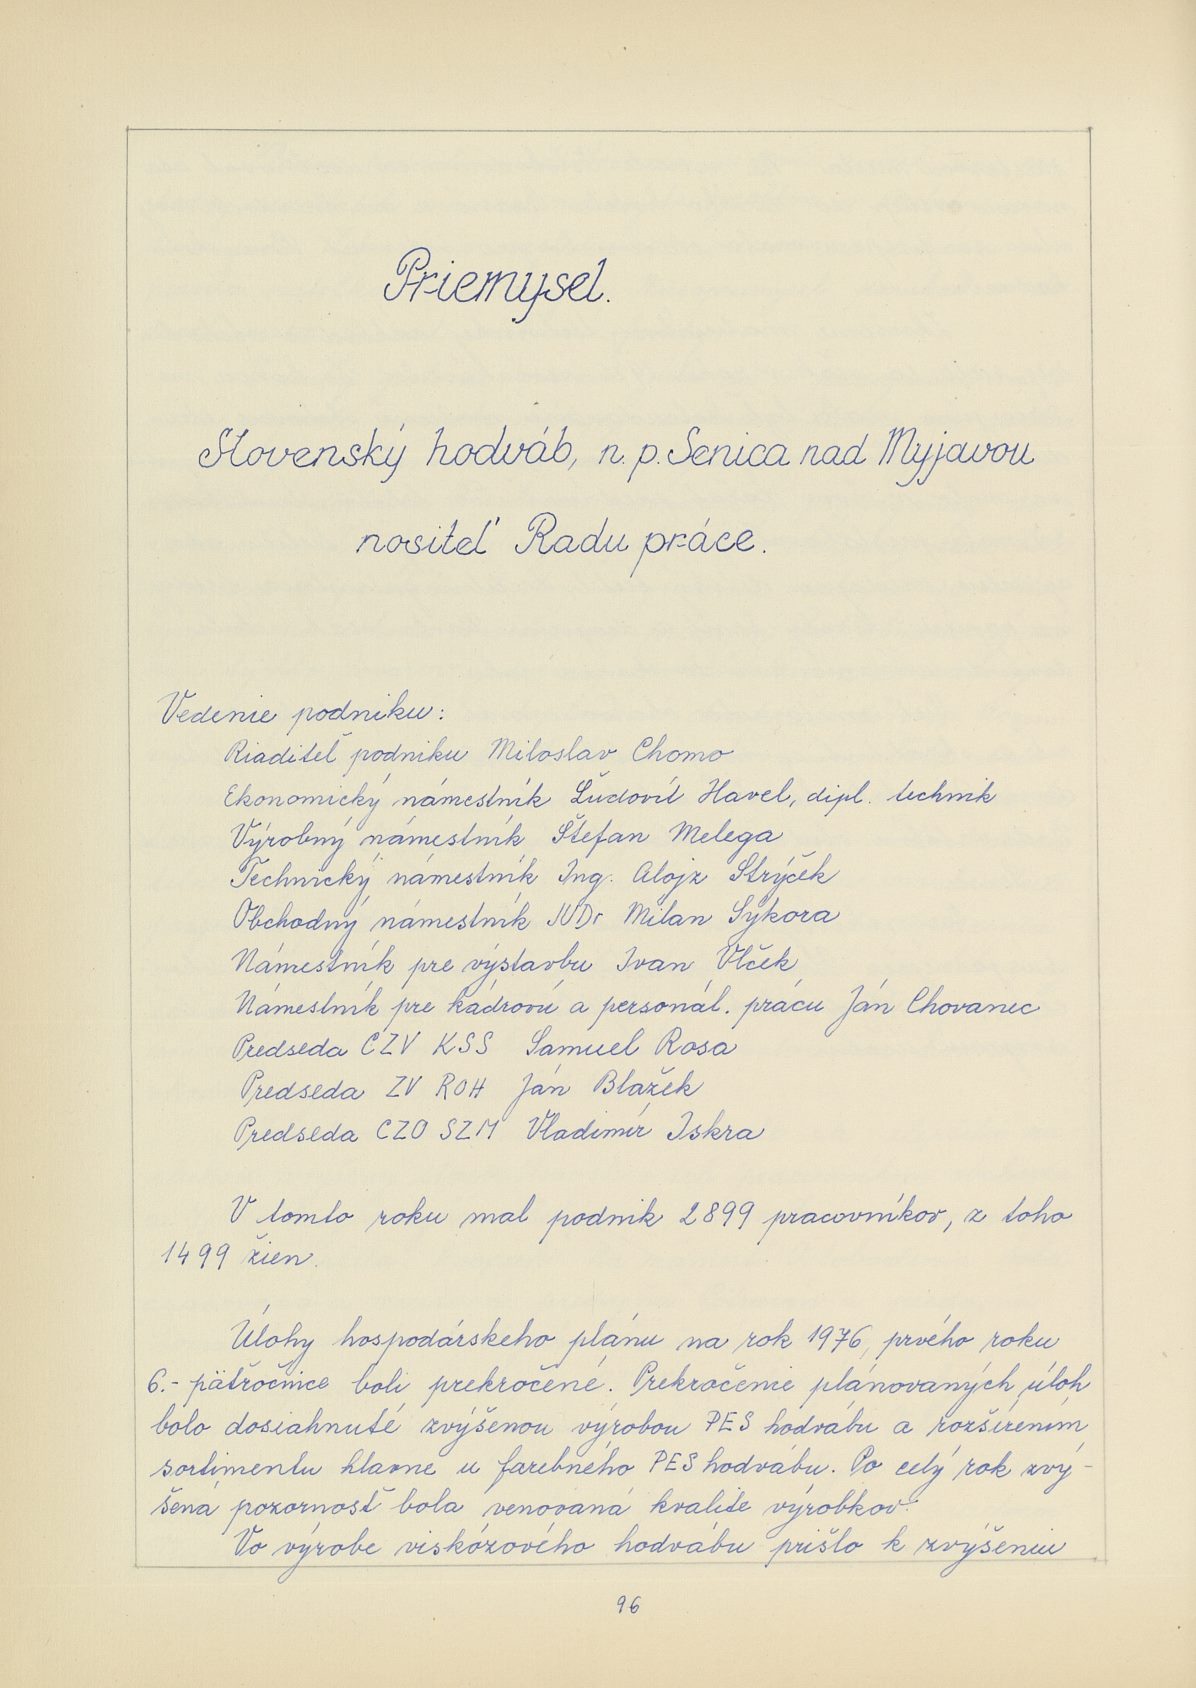 Priemysel.
Slovenský hodváb, n. p. Senica nad Myjavou
nositeľ Radu práce.
Vedenie podniku:
Riaditeľ podniku Miloslav Chomo
Ekonomický námestník Ľudovít Havel, dipl. technik
Výrobný námestník Štefan Melega
Technický námestník Ing. Alojz Strýček
Obchodný námestník JUDr Milan Sýkora
Námestník pre výstavbu Ivan Vlček
Námestník pre kádrovú a personál. prácu Ján Chovanec
Predseda CZV KSS Samuel Rosa
Predseda ZV ROH Ján Blažek
Predseda CZO SZM Vladimír Iskra
V tomto roku mal podnik 2899 pracovníkov, z toho
1499 žien.
Úlohy hospodárskeho plánu na rok 1976, prvého roku
6.- päťročnice boli prekročené. Prekročenie plánovaných úloh
bolo dosiahnuté zvýšenou výrobou PES hodvábu a rozšírením
sortimentu hlavne u farebného PES hodvábu. Po celý rok zvý-
šená pozornosť bola venovaná kvalite výrobkov.
Vo výrobe viskózového hodvábu prišlo k zvýšeniu
96